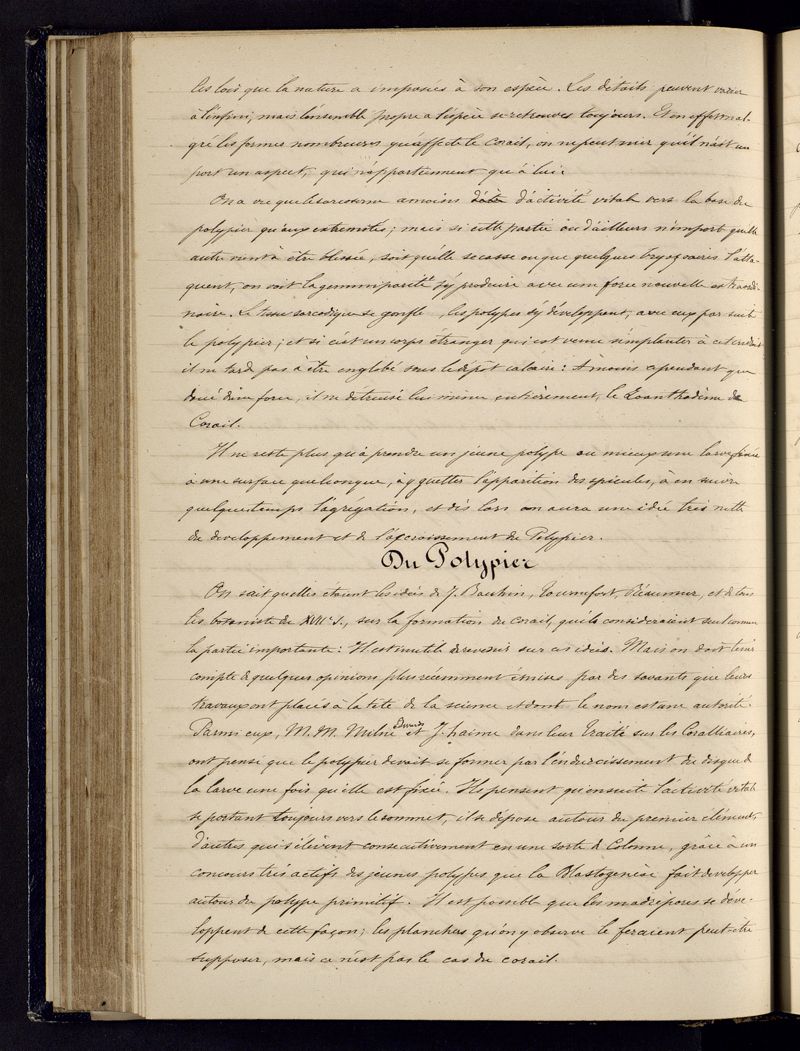 les lois que la nature a imposées à son espèce. Les détails peuvent varier
à l'infini, mais l'ensemble propre a l'espèce se retrouve toujours. Et en effet mal-
gré les formes nombreuses qu'affecte le corail, on ne peut nier qu'il n'ait un
port un aspect, qui n'appartiennent qu'à lui.
On a vu que le sarcosome a moins d'activité vitale vers la base du
polypier qu'aux extremités; mais si cette partie ou d'ailleurs n'import quelle
autre vient à être blessée, soit qu'elle se casse ou que quelques bryozoaires l'atta-
quent, on voit la gemmiparité s'y produire avec une force nouvelle extraordi-
naire. Le tissu sarcodique se gonfle, les polypes s'y développent, avec eux par suite
le polypier; et si c'est un corps étranger qui est venu s'implanter à cet endroit
il ne tarde pas à être englobé sous le dépot calcaire: A moins cependant que
doué d'une force, il ne détruise lui même entièrement, le Zoanthodème de
Corail.
Il ne reste plus qu'à prendre un jeune polype ou mieux une larve fixée
à une surface quelconque, à y guetter l'apparition des spicules, à en suivre
quelque temps l'agrégation, et dès lors on aura une idée très nette
du developpement et de l'accroissement du Polypier.
Du Polypier
On sait quelles étaient les idées de J. Bauhin, Tournefort, Réaumur, et de tous
les botaniste du XVIIe S., sur la formation du corail, qu'ils consideraient seul comme
la partie importante: Il est inutile de revenir sur ces idées. Mais on doit tenir
compte de quelques opinions plus récemment émises par des savants que leurs
travaux ont placés à la tête de la science et dont le nom est une autorité
Parmi eux, M. M. Milne Edwards et J. haime dans leur Traité sur les Coralliaires,
ont pensé que le polypier devait se former par l'endurcissement du disque de
la larve une fois qu'elle est fixée. Ils pensent qu'ensuite l'activité vitale
se portant toujours vers le sommet, il se dépose autour du premier élément,
d'autres qui s'élèvent consecutivement en une sorte de Colonne, grâce à un
concours très actifs des jeunes polypes que la Blastogenèse fait developper
autour du polype primitif. Il est possible que les madrépores se déve-
loppent de cette façon; les planchers qu'on y observe le feraient peut-être
supposer, mais ce n'est pas le cas du corail.